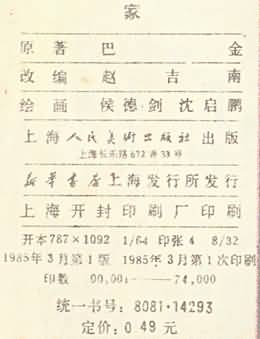 家
原著 巴金
改编 赵吉南
绘画 侯德·剑 沈启鹏
上海人民美术出版社出版
上海长乐路672弄33号
新华书店上海发行所发行
上海开封印刷厂印刷
开本787×1092 1/64 印张4 8/32
1985年3月第1版 1985年3月第1次印刷
印数 00,001——74,000
统一书号：8081·14293
定价：0.49元